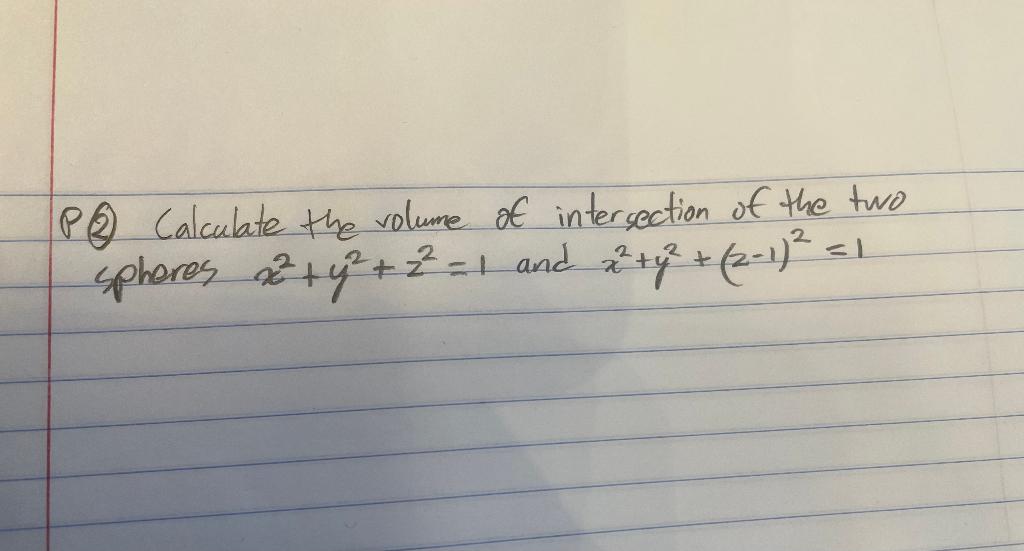 P② Calculate the volume of intersection of the two
spheres x²+y²+z²=1 and x²+y²+(z-1)²=1